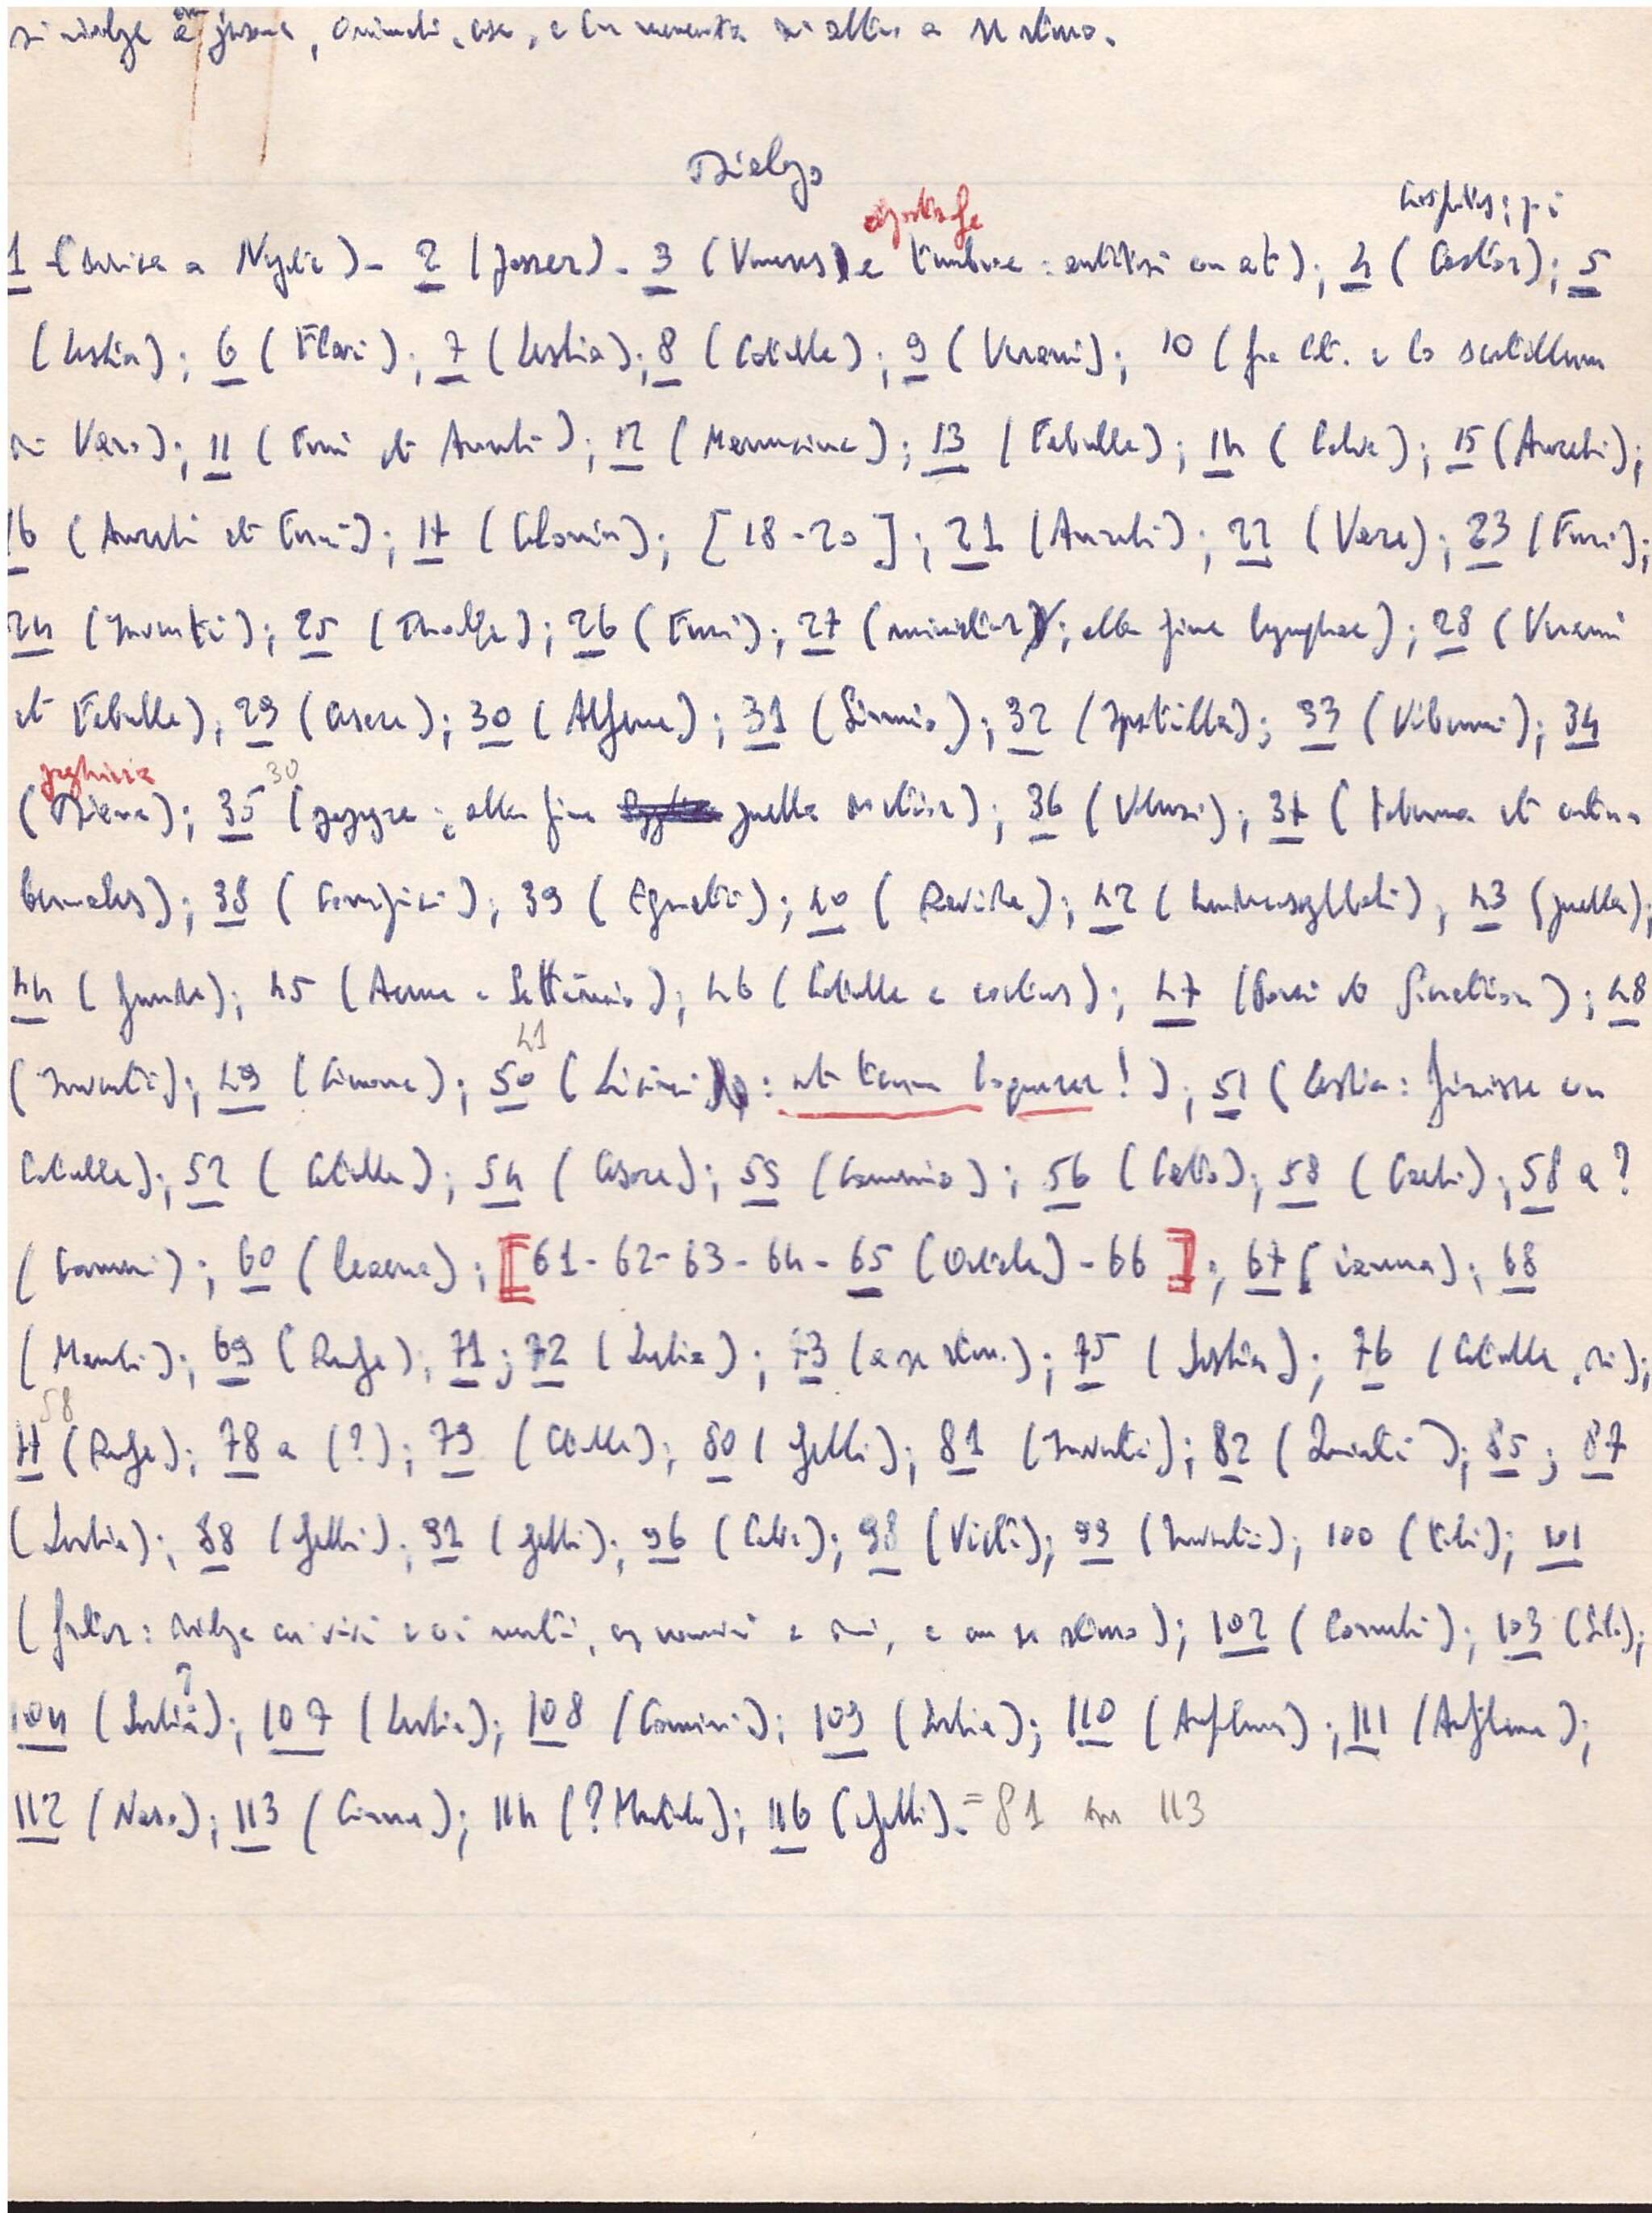 si rivolge a persone, animali, cose, e con veemenza si altri a se stesso.
Dialogo
apostrofe
hospites; p. i
1 (dedica a Nepote) - 2 (passer) - 3 (Veneres) e tenebrae: antitesi con at); 4 (Castor); 5
(Lesbia); 6 (Flavi); 7 (Lesbia); 8 (Catulle); 9 (Verani); 10 (fra Cat. e lo scortillum
di Varo); 11 (Furi et Aureli); 12 (Marrucine); 13 (Fabulle); 14 (Calve); 15 (Aureli);
16 (Aureli et Furi); 17 (Colonia); [18-20]; 21 (Aureli); 22 (Vare); 23 (Furi);
24 (Iuventi); 25 (Thalle); 26 (Furi); 27 (minister); alla fine lymphae); 28 (Verani
et Fabulle); 29 (Cesare); 30 (Alfene); 31 (Sirmio); 32 (Ipsitilla); 33 (Vibenni); 34
preghiera
30
(Diana); 35 (papyre; alla fine puella doctior); 36 (Volusi); 37 (taberna et contu-
bernales); 38 (Cornifici); 39 (Egnati); 40 (Ravide); 42 (hendecasyllabi); 43 (puella);
44 (funde); 45 (Acme e Settimio); 46 (Catulle e coetus); 47 (Porci et Socration); 48
41
(Iuventi); 49 (Cicerone); 50 (Licini: ut tecum loquerer!); 51 (Lesbia: finisce con
Catulle); 52 (Catulle); 54 (Cesare); 55 (Camerio); 56 (Cato); 58 (Caeli); 58 a?
(Cameri); 60 (leaena); [61-62-63-64-65 (Ortale)-66]; 67 (ianua); 68
(Manli); 69 (Rufe); 71; 72 (Lesbia); 73 (a se stesso); 75 (Lesbia); 76 (Catulle, di);
58
77 (Rufe); 78 a (?); 79 (Catulle); 80 (Gelli); 81 (Iuventi); 82 (Quinti); 85; 87
(Lesbia); 88 (Gelli); 91 (Gelli); 96 (Calve); 98 (Victi); 99 (Iuventi); 100 (Celi); 101
(frater: dialoga coi vivi e coi morti, cogli uomini e dei, e con se stesso); 102 (Corneli); 103 (Silo);
?
104 (Lesbia); 107 (Lesbia); 108 (Comini); 109 (Lesbia); 110 (Aufilena); 111 (Aufilena);
112 (Naso); 113 (Cinna); 114 (? Mentula); 116 (Gelli). = 81 su 113